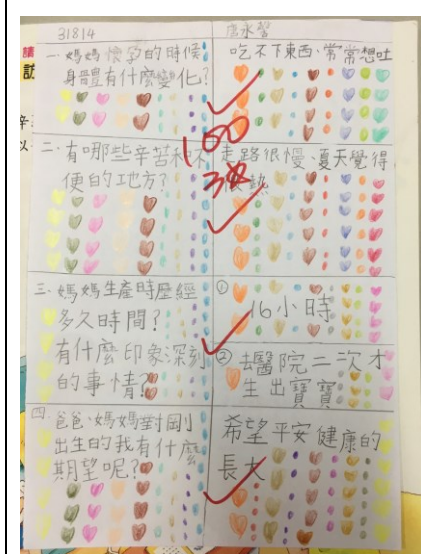 31814
唐永馨
一、媽媽懷孕的時候
身體有什麼變化?
吃不下東西、常常想吐
100
二、有哪些辛苦和不
便的地方?
走路很慢、夏天覺得
很熱
三、媽媽生產時歷經
多久時間?
有什麼印象深刻
的事情?
① 16小時
② 去醫院二次才
生出寶寶
四、爸爸、媽媽對剛
出生的我有什麼
期望呢?
希望平安健康的
長大